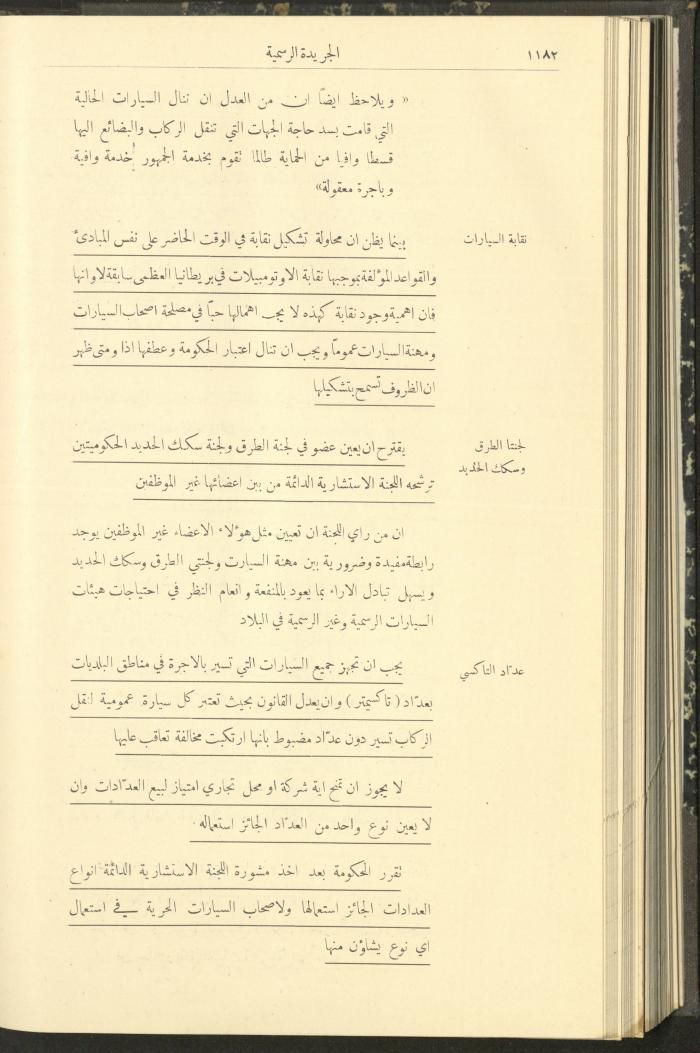 ١١٨٢
الجريدة الرسمية
« ويلاحظ ايضاً ان من العدل ان ننال السيارات الحالية
التي قامت بسد حاجة الجهات التي تنقل الركاب والبضائع اليها
قسطا وافيا من الحماية طالما تقوم بخدمة الجمهور خدمة وافية
وباجرة معقولة»
نقابة السيارات
بينما يظن ان محاولة تشكيل نقابة في الوقت الحاضر على نفس المبادئ
والقواعد المؤلفة بموجبها نقابة الاوتومبيلات في بريطانيا العظمى سابقة لاوانها
فان اهمية وجود نقابة كهذه لا يجب اهمالها حبّا في مصلحة اصحاب السيارات
ومهنة السيارات عموماً ويجب ان تنال اعتبار الحكومة وعطفها اذا ومتى ظهر
ان الظروف تسمح بتشكيلها
لجنتا الطرق
وسكك الحديد
يقترح ان يعين عضو في لجنة الطرق ولجنة سكك الحديد الحكوميتين
ترشحه اللجنة الاستشارية الدائمة من بين اعضائها غير الموظفين
ان من راي اللجنة ان تعيين مثل هوٴلاء الاعضاء غير الموظفين يوجد
رابطة مفيدة وضرورية بين مهنة السيارت ولجنتي الطرق وسكك الحديد
ويسهل تبادل الاراء بما يعود بالمنفعة وانعام النظر في احتياجات هيئات
السيارات الرسمية وغير الرسمية في البلاد
عدّاد التاكسي
يجب ان تجهز جميع السيارات التي تسير بالاجرة في مناطق البلديات
بعدّاد ( تاكسيمتر ) وان يعدل القانون بحيث تعتبر كل سيارة عمومية لنقل
الركاب تسير دون عدّاد مضبوط بانها ارتكبت مخالفة تعاقب عليها
لا يجوز ان تمنح اية شركة او محل تجاري امتياز لبيع العدّادات وان
لا يعين نوع واحد من العدّاد الجائز استعماله ٠
تقرر الحكومة بعد اخذ مشورة اللجنة الاستشارية الدائمة انواع
العدادات الجائز استعمالها ولاصحاب السيارات الحرية في استعمال
اي نوع يشاؤن منها